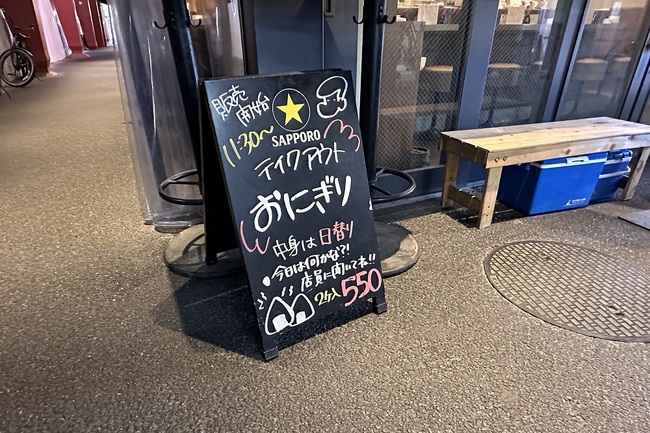 販売
開始
11:30～
SAPPORO
テイクアウト
おにぎり
中身は日替り
今日は何かな？！
店員に聞いてネ！！
2ケ入 550